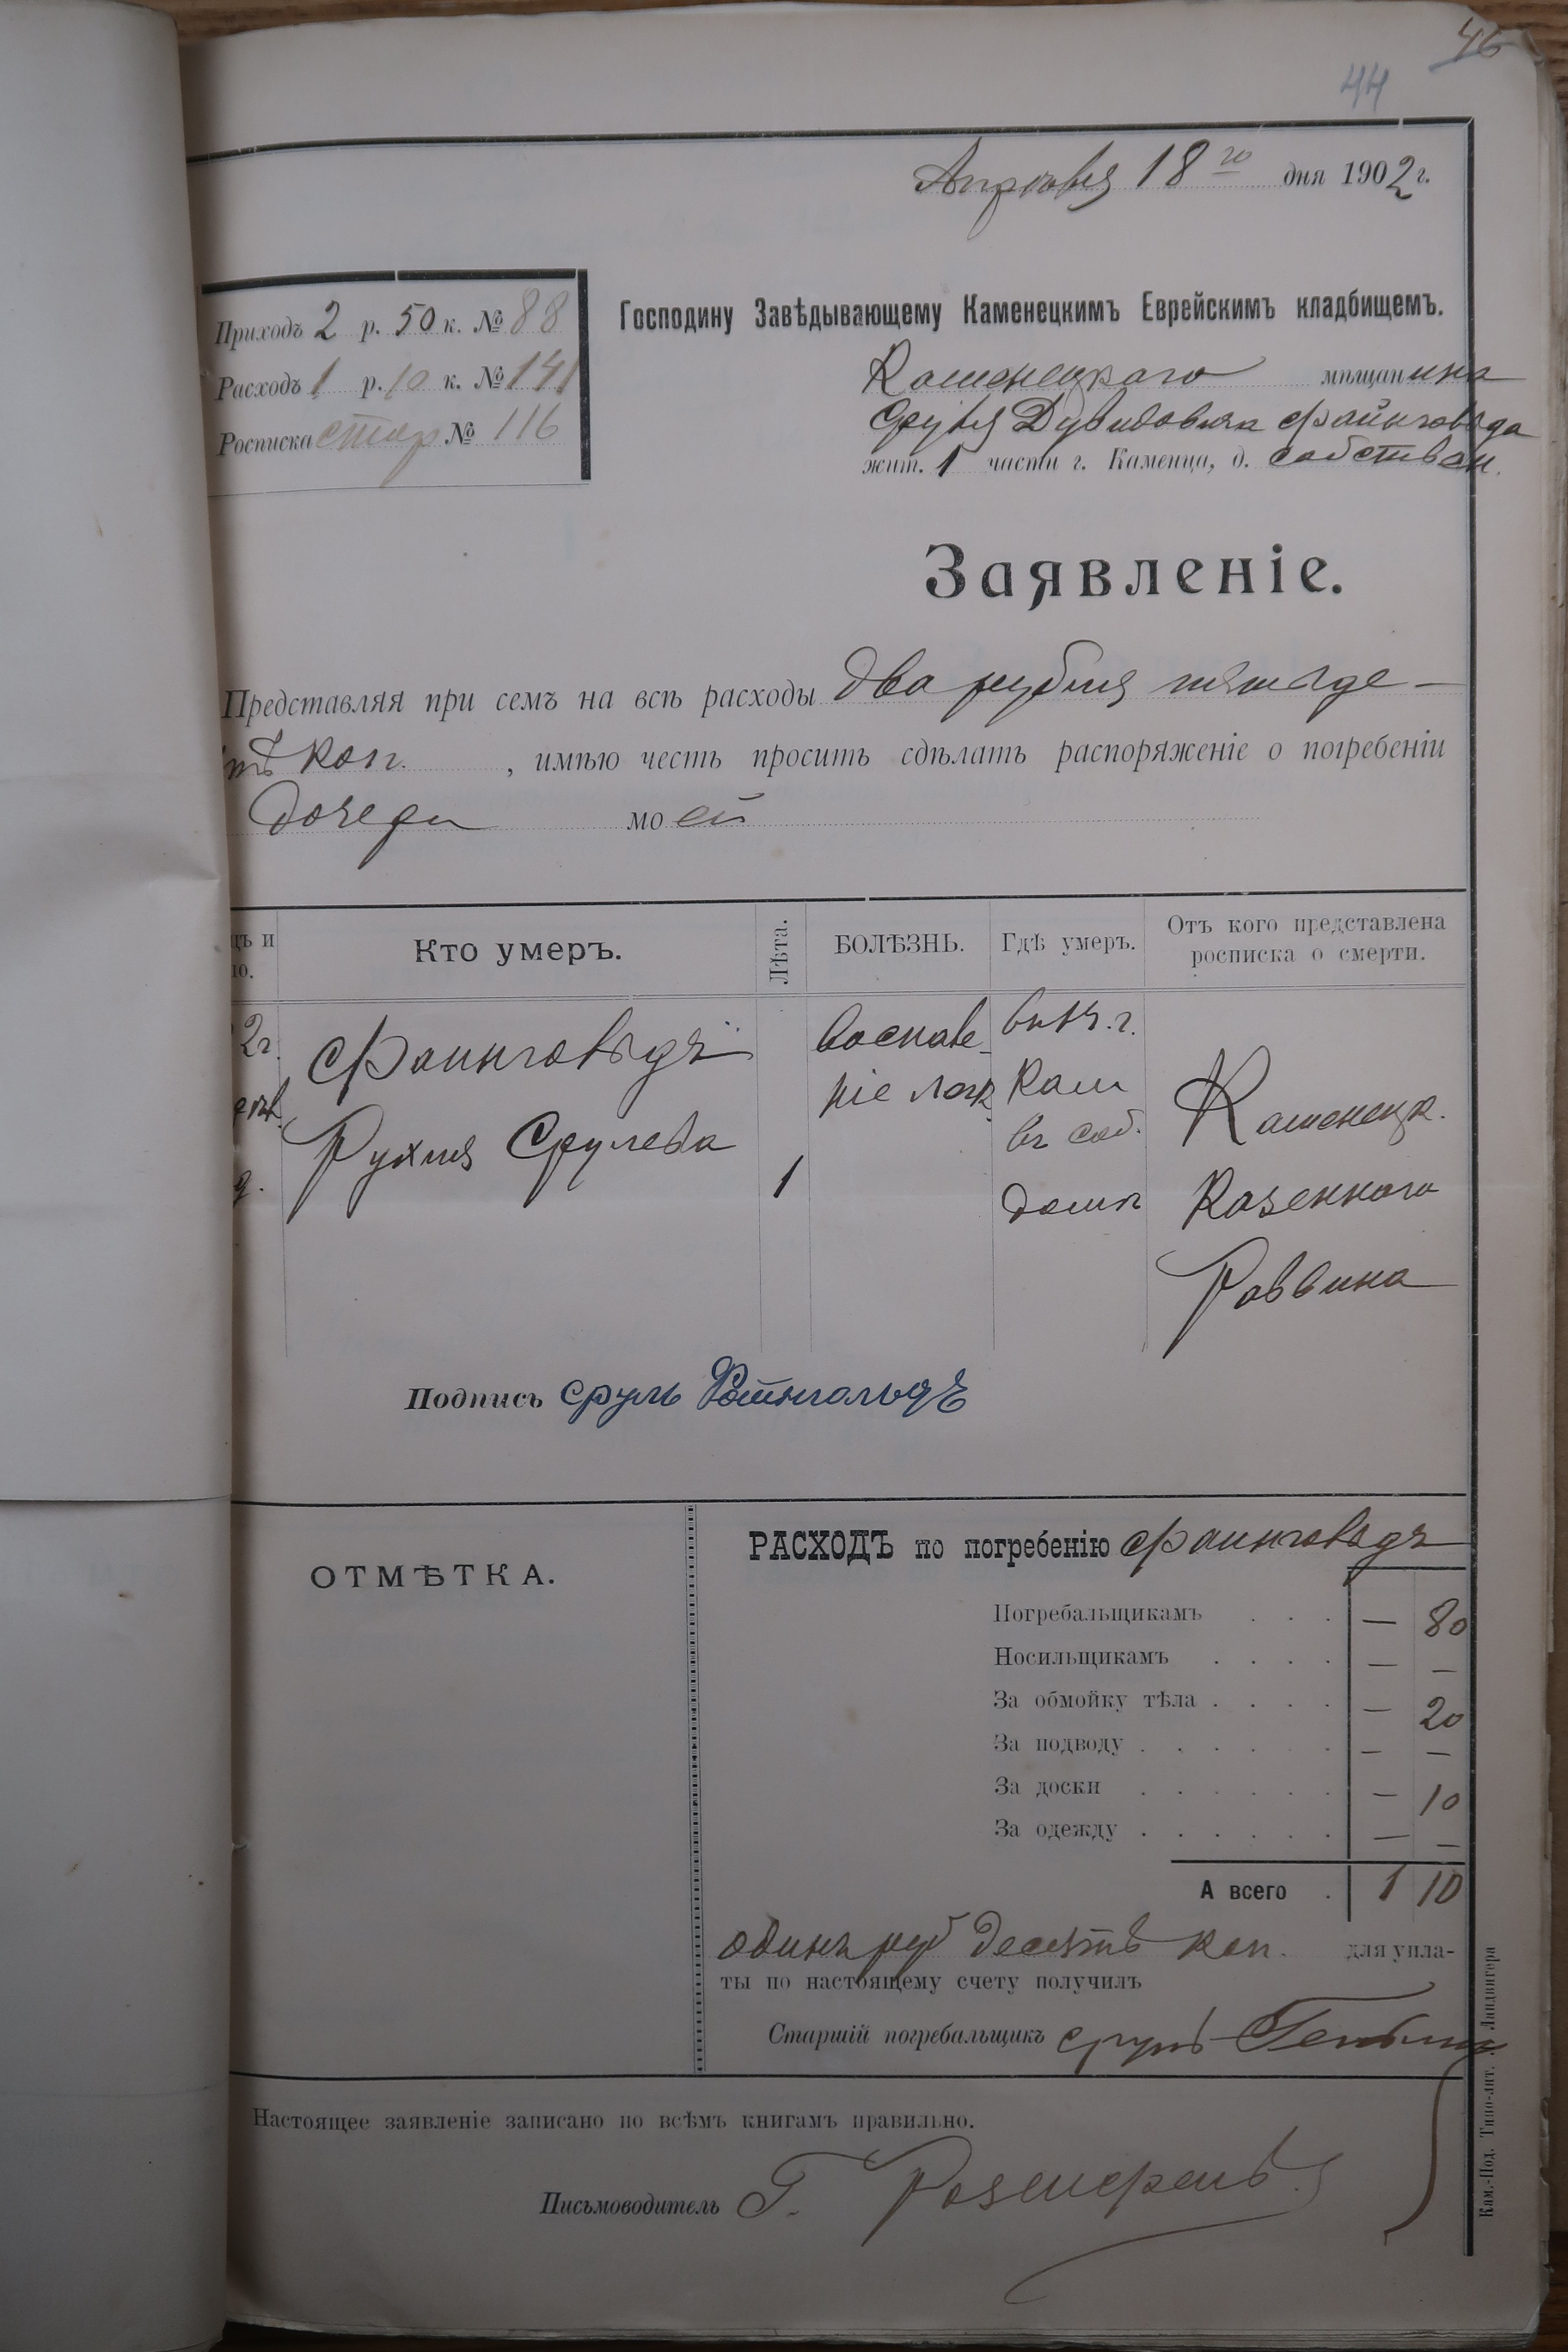 46
44
Апрѣля 18 го дня 1902 г.
Приходъ 2 р. 50 к. № 88
Расходъ 1 р. 10 к. № 141
Росписка стар № 116
Господину Завѣдывающему Каменецкимъ Еврейскимъ кладбищемъ.
Каменецкого мѣщанина
Сруля Дувидовича Файнгольда
жит. 1 части г. Каменца, д. собствен.
Заявленіе.
Представляя при семъ на всѣ расходы два рубля пятьде-
тъ коп. , имѣю честь просить сдѣлать распоряженіе о погребеніи
дочери моей
цъ и
ло.
Кто умеръ.
Лѣта.
БОЛѢЗНЬ.
Гдѣ умеръ.
Отъ кого представлена
росписка о смерти.
2г.
Фаингольдъ
Рухля Срулева
1
воспале
ніе легк
Кам
въ соб.
домѣ
Каменецк.
Казенного
Раввина
Подпись Сруль Фаингольдъ
ОТМѢТКА.
РАСХОДЪ по погребенію Фаингольдъ
Погребальщикамъ . . . — 80
Носильщикамъ . . . . — —
За обмойку тѣла . . . . — 20
За подводу . . . . . . — —
За доски . . . . . . — 10
За одежду . . . . . . — —
А всего . 1 10
одинъ руб десять коп. для упла-
ты по настоящему счету получилъ
Старшій погребальщикъ Сруль
Настоящее заявленіе записано по всѣмъ книгамъ правильно.
Письмоводитель Г.
Кам.-Под. Типо-лит. Ландвигера